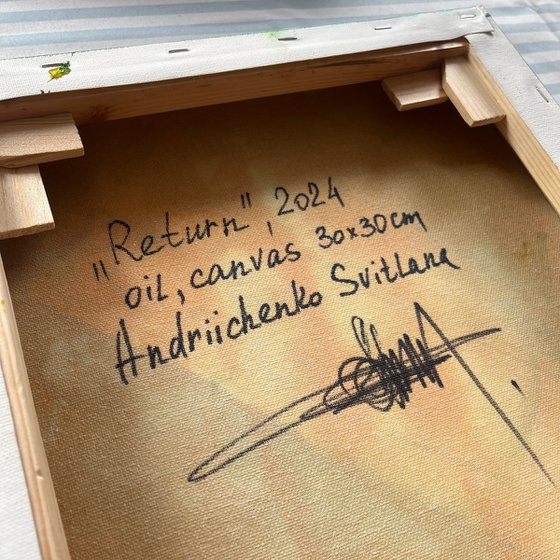 "Return", 2024
oil, canvas 30x30cm
Andriichenko Svitlana